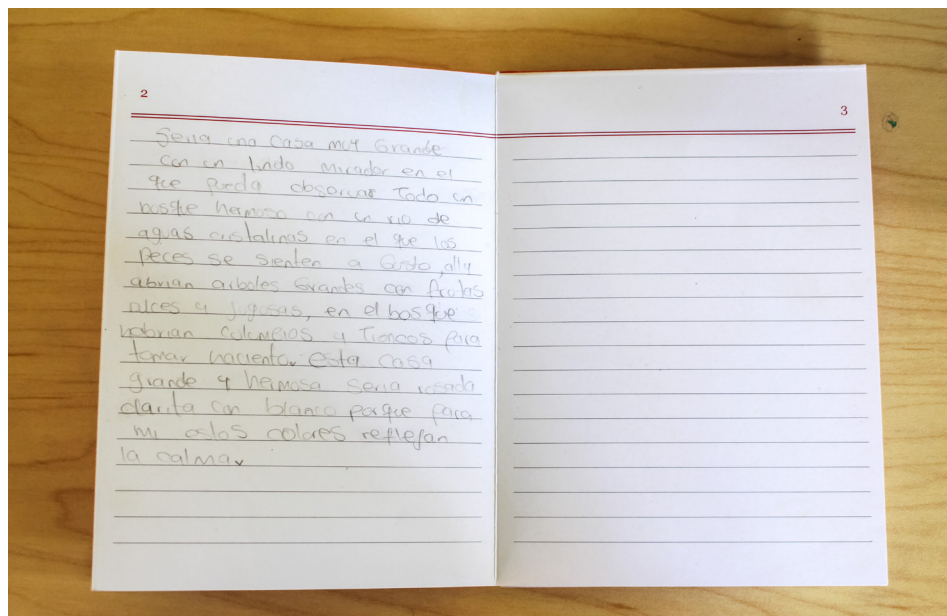 2
3
Seria una casa muy Grande
con un lindo mirador en el
que pueda observar Todo un
bosque hermoso con un rio de
aguas cristalinas en el que los
peces se sienten a Gusto, ally
abrian arboles Grandes con frutas
dulces y jugosas, en el bosque
habrian columpios y Troncos para
tomar haciento. esta casa
grande y hermosa seria rosada
clarita con blanco porque para
mi estos colores reflejan
la calma.